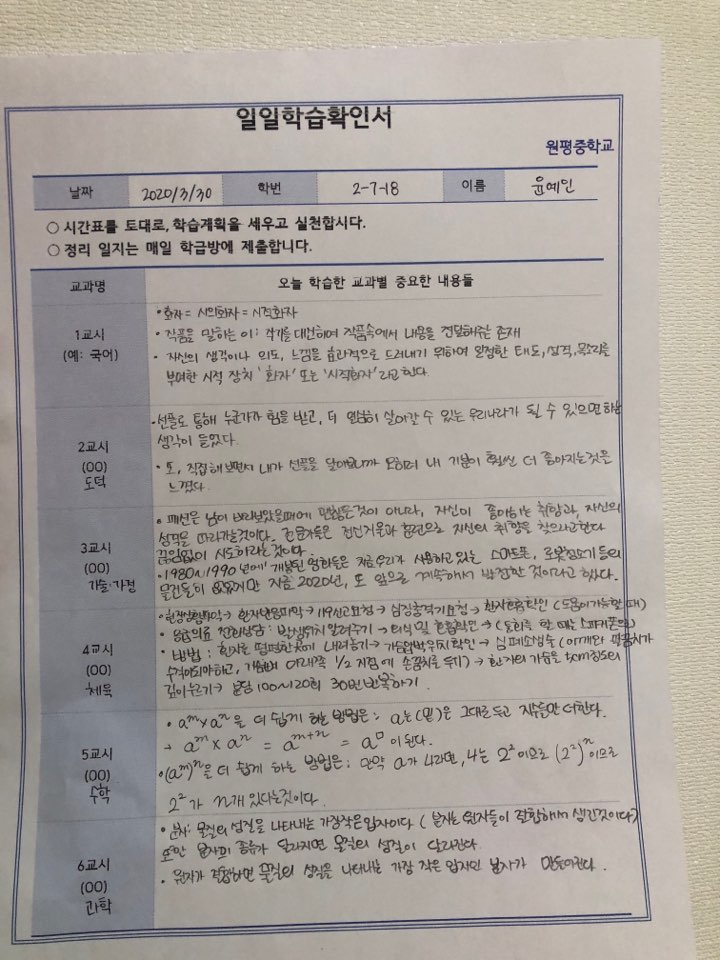 일일학습확인서
원평중학교
날짜 2020/3/30 학번 2-7-18 이름 윤예인
○ 시간표를 토대로, 학습계획을 세우고 실천합시다.
○ 정리 일지는 매일 학급방에 제출합니다.
교과명 오늘 학습한 교과별 중요한 내용들
1교시
(예: 국어)
• 화자 = 시의화자 = 시적화자
• 작품을 말하는 이: 작가를 대신하여 작품속에서 내용을 전달해주는 존재
• 자신의 생각이나 의도, 느낌을 효과적으로 드러내기 위하여 일정한 태도, 성격, 목소리를
부여한 시적 장치 '화자' 또는 '시적화자'라고 한다.
2교시
(00)
도덕
• 선플로 통해 누군가가 힘을 받고, 더 열심히 살아갈 수 있는 우리나라가 될 수 있으면 하는
생각이 들었다.
• 또, 직접 해보면서 내가 선플을 달아보니까 오히려 내 기분이 훨씬 더 좋아지는것을
느꼈다.
3교시
(00)
기술·가정
• 패션은 남이 바라보았을때에 만드는것이 아니라, 자신이 좋아하는 취향과, 자신의
성격을 따라가는것이다. 전문가들은 전신거울과 함편으로 자신의 취향을 찾으라고한다
끊임없이 시도하라는것이다.
• 1980~1990년에 개봉된 영화들은 지금 우리가 사용하고 있는 스마트폰, 로봇청소기 등의
물건들이 없었지만 지금 2020년, 또 앞으로 계속해서 발전할 것이라고 했다.
4교시
(00)
체육
• 현장상황파악 → 환자반응파악 → 119신고요청 → 심장충격기요청 → 환자호흡확인 (도움이 가능할 때)
• 응급의료 전화상담: 발생위치 알려주기 → 의식 및 호흡확인 → (통화를 할 때는 스피커폰으로)
• 방법: 환자를 평평한 곳에 내려놓기 → 가슴압박위치확인 → 심폐소생술 (어깨와 팔꿈치가
수직이되야하고, 가슴뼈의 아래쪽 1/2 지점에 손꿈치를 두기) → 환자의 가슴을 5cm정도의
깊이 누르기 → 분당 100~120회 30번 반복하기.
5교시
(00)
수학
• aᵐ×aⁿ을 더 쉽게 하는 방법은: a는 (밑)은 그대로 두고 지수들만 더한다.
→ aᵐ × aⁿ = aᵐ⁺ⁿ = a□ 이 된다.
• (aᵐ)ⁿ을 더 쉽게 하는 방법은: 만약 a가 4라면, 4는 2² 이므로 (2²)ⁿ이므로
2²가 n개 있다는것이다.
6교시
(00)
과학
• 분자: 물질의 성질을 나타내는 가장작은입자이다 (분자는 원자들이 결합해서 생긴것이다)
또한 분자의 종류가 달라지면 물질의 성질이 달라진다.
• 원자가 결합하면 물질의 성질을 나타내는 가장 작은 입자인 분자가 만들어진다.